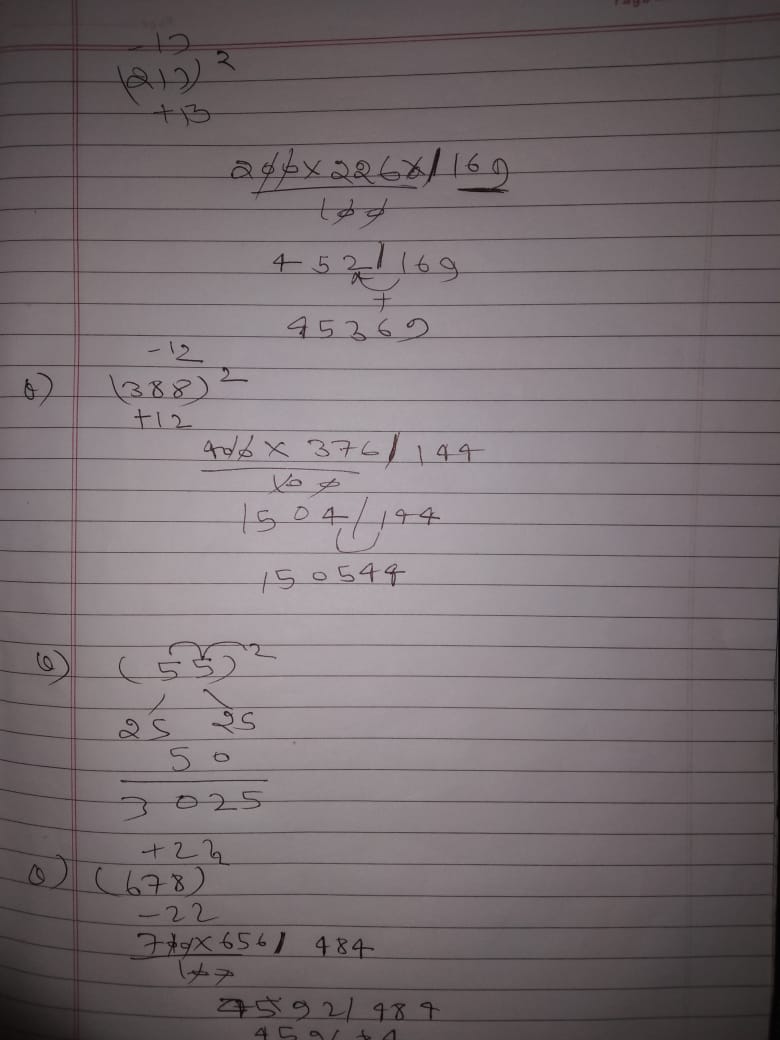 -13
(213)²
+13
200 x 226 / 169
100
452 / 169
+
45369
-12
Q) (388)²
+12
400 x 376 / 144
100
1504 / 144
150544
Q) (55)²
25 25
50
3025
+22
Q) (678)
-22
700 x 656 / 484
100
4592 / 484